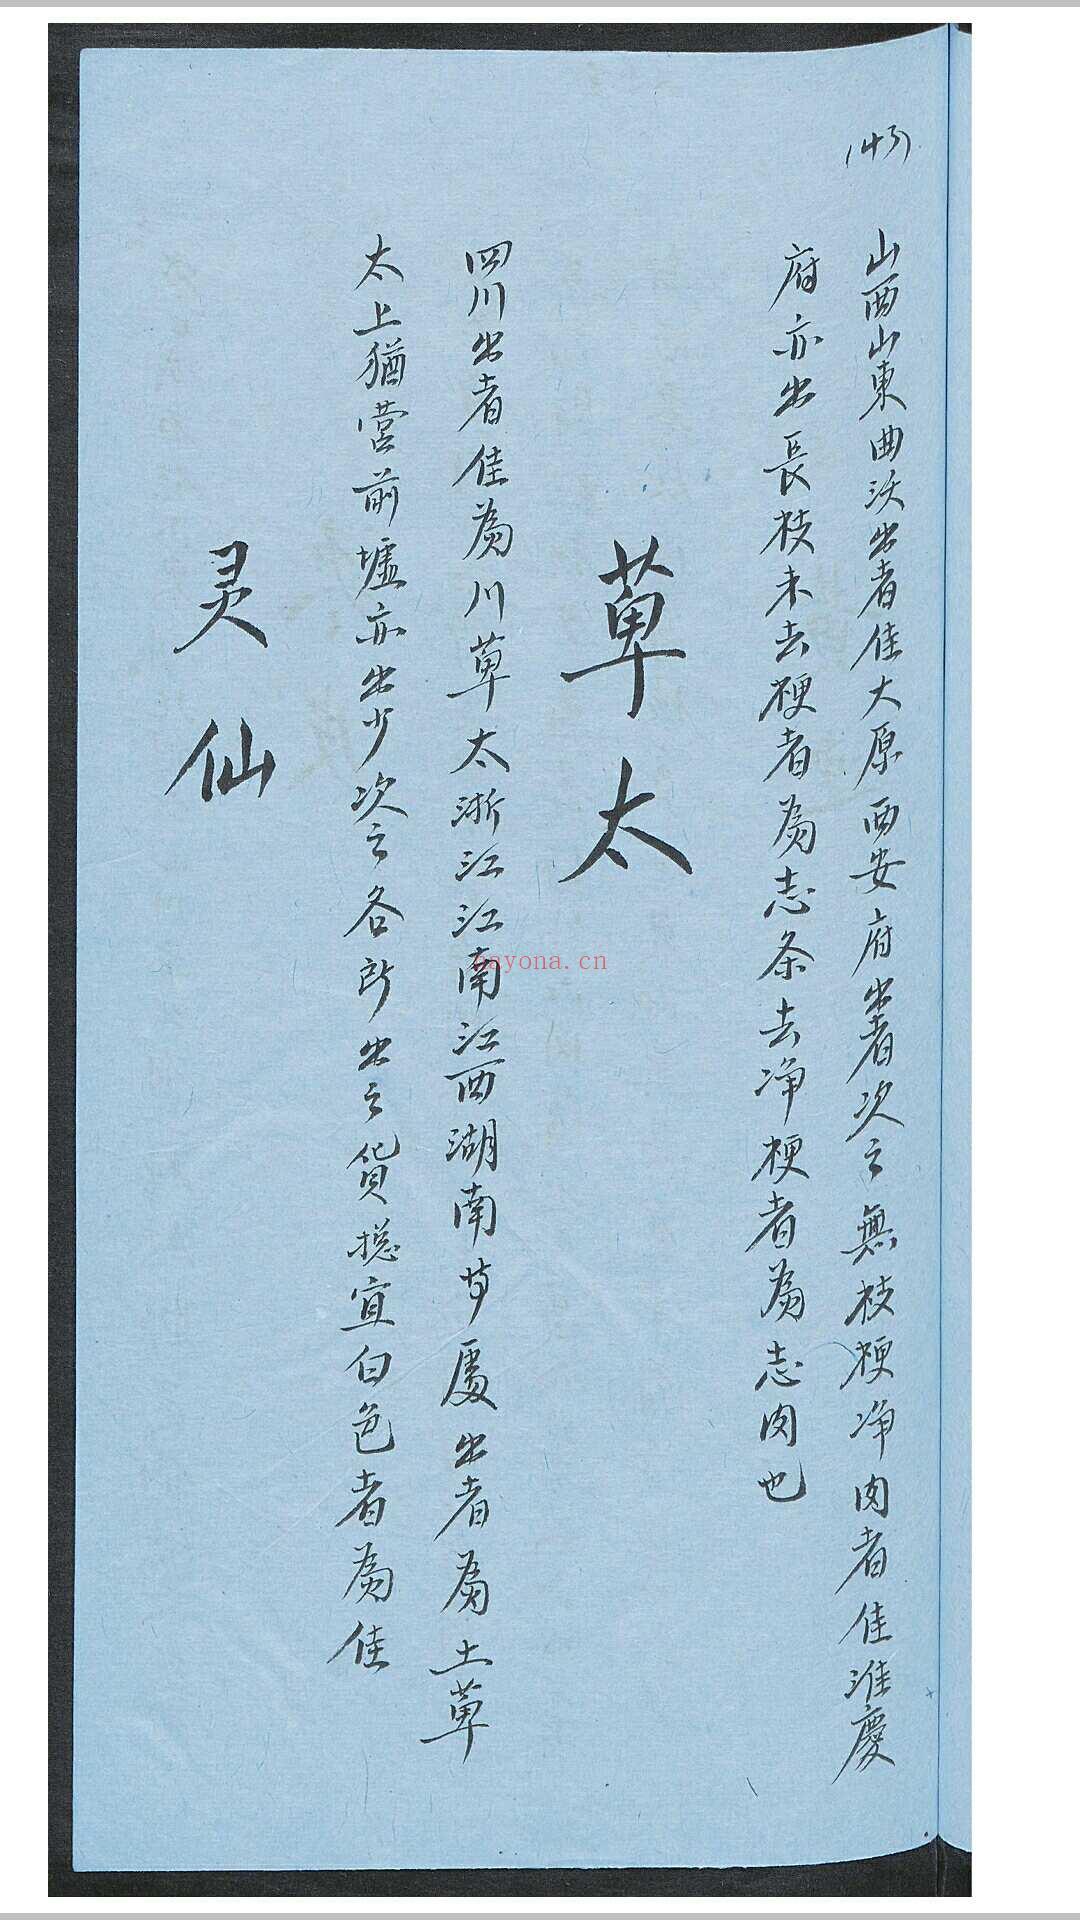 (43)
山西山東曲沃出者佳大原西安府出者次之無枝梗净肉者佳淮慶
府亦出長枝未去梗者為志条去净梗者為志肉也
萆太
四川出者佳為川萆太浙江江南江西湖南等處出者為土萆
太上猶营前墟亦出少次之各所出之貨揔宜白色者為佳
灵仙
nayona.cn